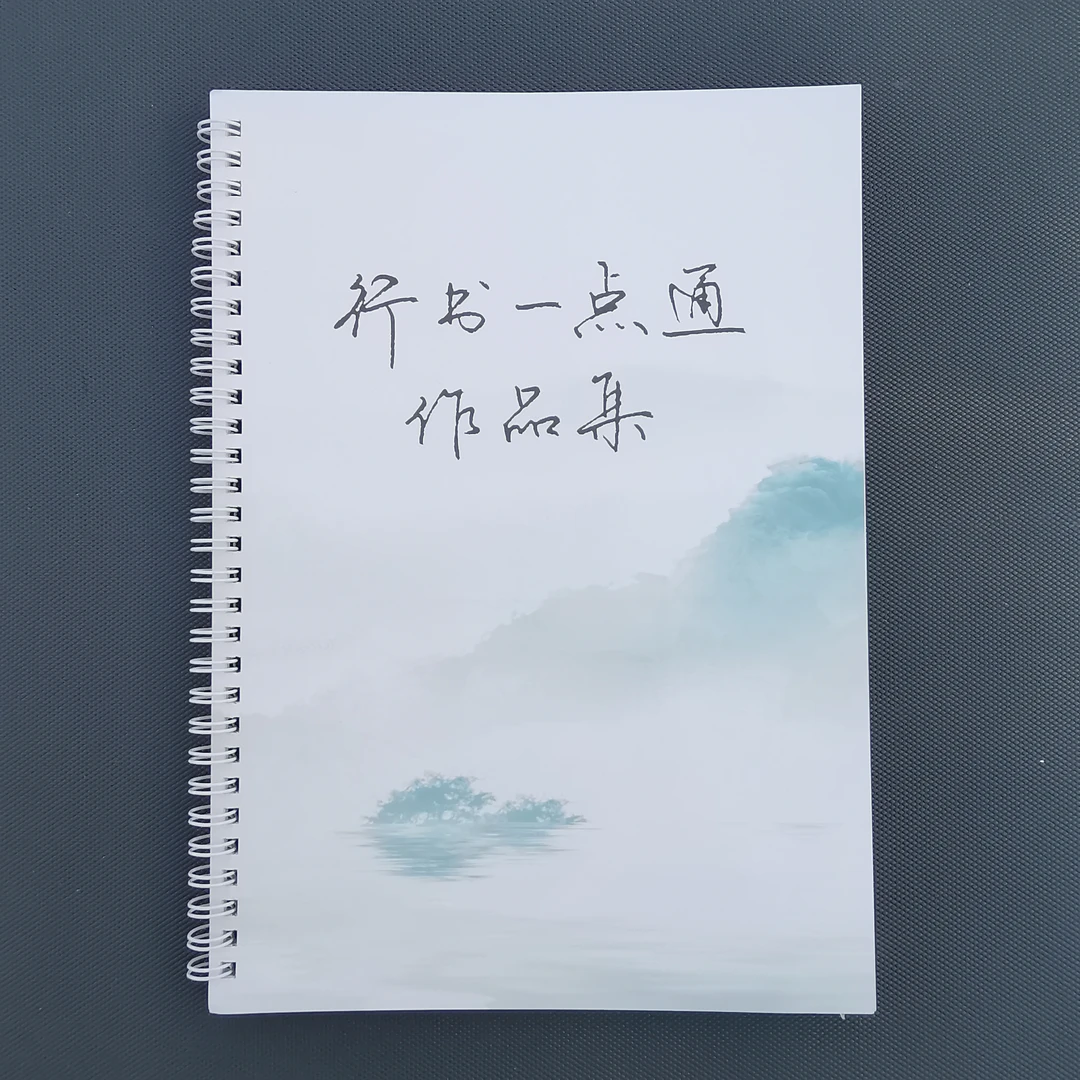 行书一点通
作品集